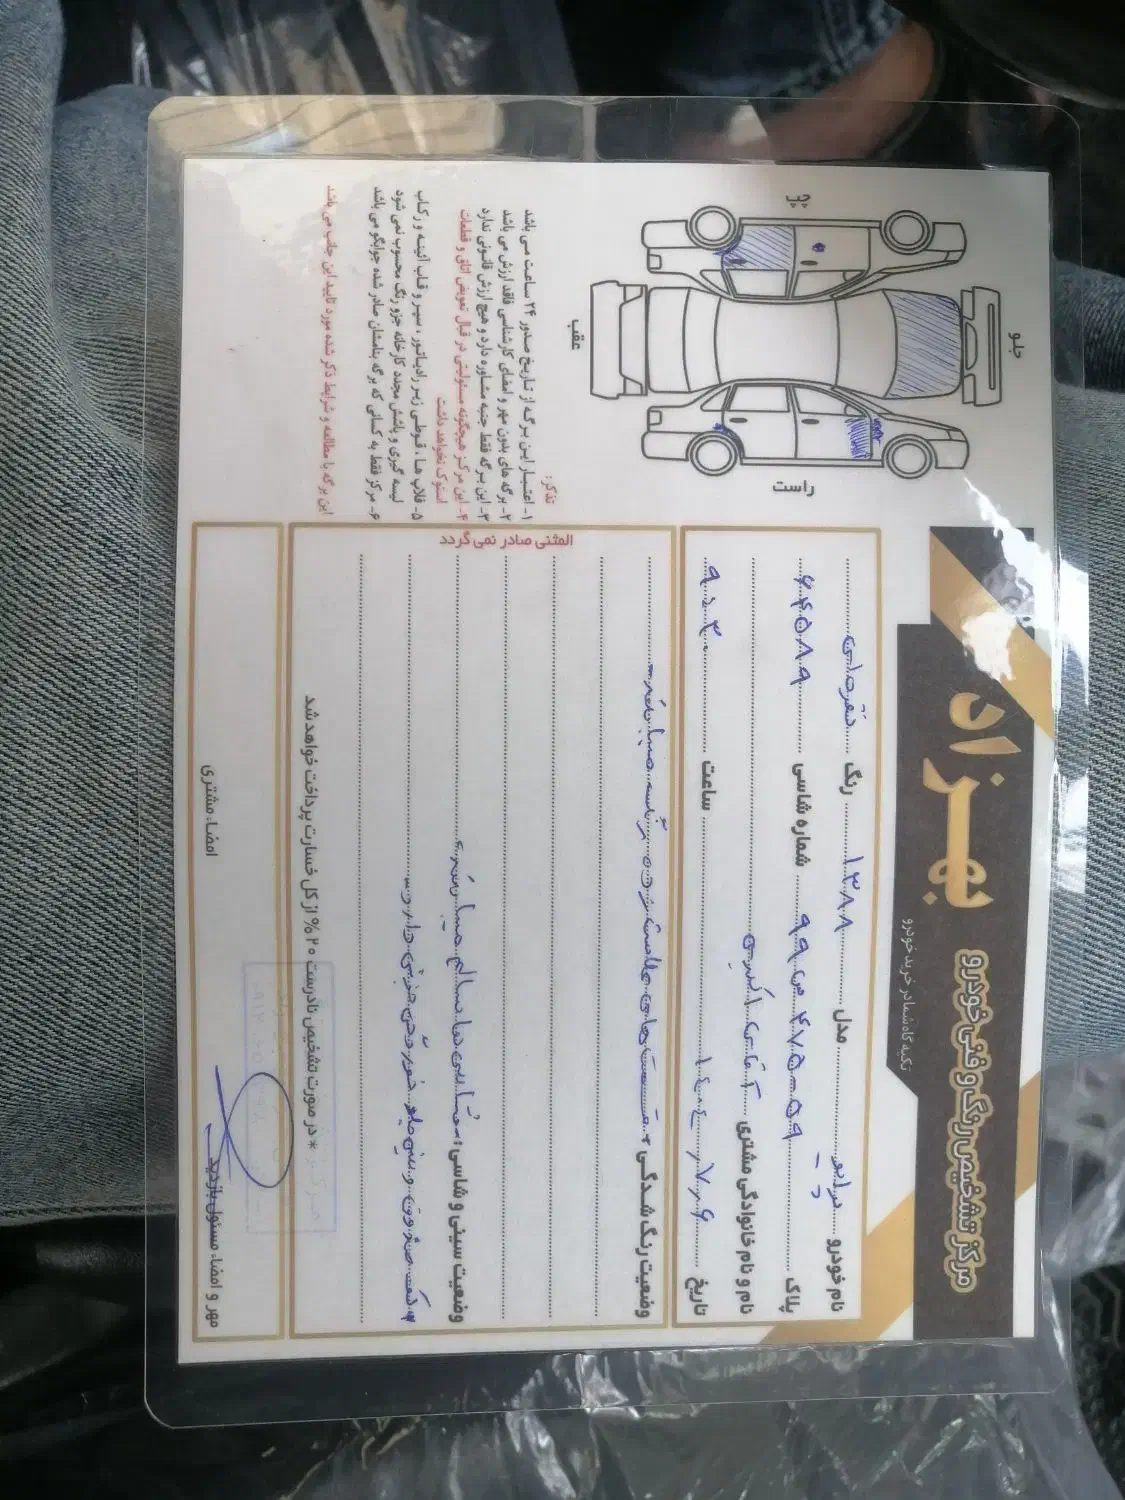 بهزاد
مرکز تشخیص رنگ و فنی خودرو
تکیه گاه شما در خرید خودرو
نام خودرو پراید مدل ۱۳۸۸ رنگ نقره‌ای
پلاک ۵۹-۴۷۵ س ۹۹ شماره شاسی ۶۴۵۸۹
نام و نام خانوادگی مشتری آقای اکبری
تاریخ ۱۴۰۴/۷/۰۶ ساعت ۹:۳۰
وضعیت رنگ شدگی: قسمت های علامت زده رنگ میباشد
وضعیت سینی و شاسی: شاسی ها سالم میباشد
جلو
عقب
چپ
راست
تذکر:
۱- اعتبار این برگه از تاریخ صدور ۲۴ ساعت می باشد
۲- برگه های بدون مهر و امضای کارشناسی فاقد ارزش می باشد
۳- این برگه فقط جنبه مشاوره دارد و هیچ ارزش قانونی ندارد
۴- این مرکز هیچگونه مسئولیتی در قبال تعویض اتاق و قطعات استوک نخواهد داشت
۵- قلاب ها، قوطی زیر رادیاتور، سپر و قاب آئینه و رکاب
لیسه گیری و پاشش مجدد کارخانه جزو رنگ محسوب نمی شود
۶- مرکز فقط به کسانی که برگه بنامشان صادر شده جوابگو می باشد
این برگه با مطالعه و شرایط ذکر شده مورد تایید این جانب می باشد
المثنی صادر نمی گردد
* در صورت تشخیص نادرست ۲۰% از کل خسارت پرداخت خواهد شد
مهر و امضاء مسئول بازدید
امضاء مشتری